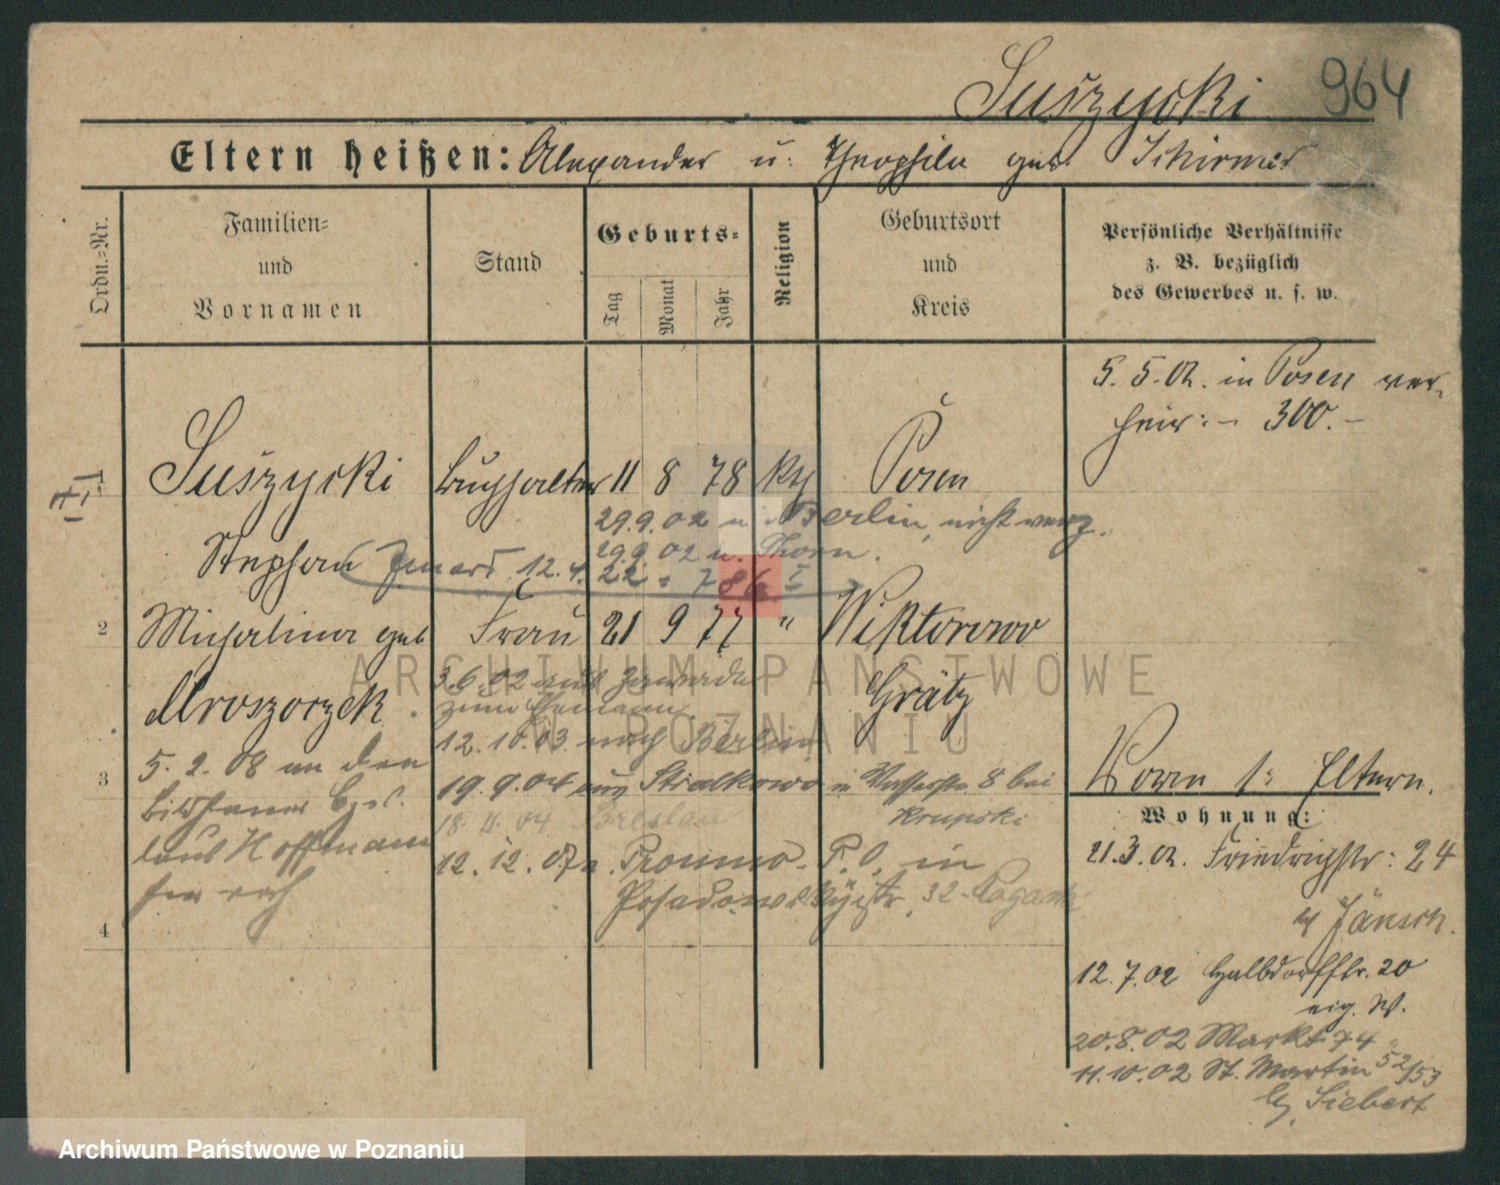 Suszycki 964
Eltern heißen: Alexander u. Theophila geb. Schirmer
Ordn.=Nr.
Familien=
und
Vornamen
Stand
Geburts=
Tag
Monat
Jahr
Religion
Geburtsort
und
Kreis
Persönliche Verhältnisse
z. B. bezüglich
des Gewerbes u. s. w.
5. 5. 02. in Posen ver-
heir: - 300. -
1 Suszycki Buchhalter 11 8 78 kth Posen
29.9.02 n. Berlin, nicht verz.
29.9.02 n. Thorn.
Stephan 12. 4. 22 786 I
2 Michalina geb Frau 21 9 77 " Wiktorowo
Mroszczek Grätz
3.6.02 aus
zum Ehemann
12. 10. 03. nach Berlin
3
5. 2. 08 an den
Hoffmann
19. 9. 04 aus Stralkowo n. Wasserstr 8 bei
Krupski
18. 4. 04 Breslau
12. 12. 07 n. Pronmo. P. O. in
Posadowskystr. 32
4
Vorm 1: Eltern.
Wohnung:
21. 3. 02. Friedrichstr: 24
b/ Jänsch.
12. 7. 02 Halbdorfstr. 20
eig. W.
20. 8. 02 Markt 74
11. 10. 02 St. Martin 52/53
b/ Siebert
ARCHIWUM PAŃSTWOWE
W POZNANIU
Archiwum Państwowe w Poznaniu